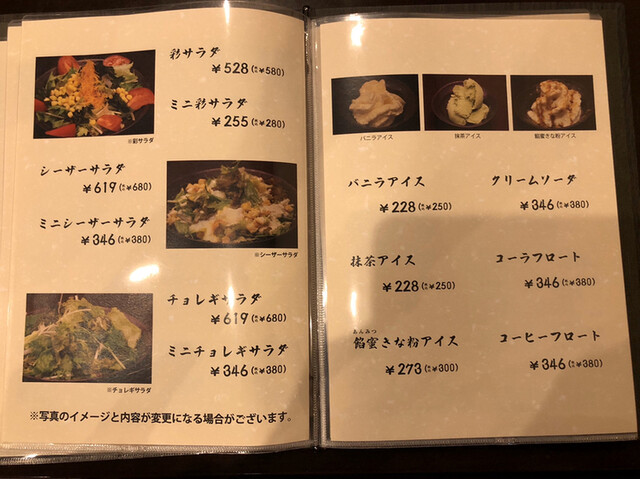 彩サラダ
¥528(税込¥580)
ミニ彩サラダ
¥255(税込¥280)
※彩サラダ
シーザーサラダ
¥619(税込¥680)
ミニシーザーサラダ
¥346(税込¥380)
※シーザーサラダ
チョレギサラダ
¥619(税込¥680)
ミニチョレギサラダ
¥346(税込¥380)
※チョレギサラダ
※写真のイメージと内容が変更になる場合がございます。
バニラアイス
抹茶アイス
餡蜜きな粉アイス
バニラアイス
¥228(税込¥250)
クリームソーダ
¥346(税込¥380)
抹茶アイス
¥228(税込¥250)
コーラフロート
¥346(税込¥380)
あんみつ
餡蜜きな粉アイス
¥273(税込¥300)
コーヒーフロート
¥346(税込¥380)